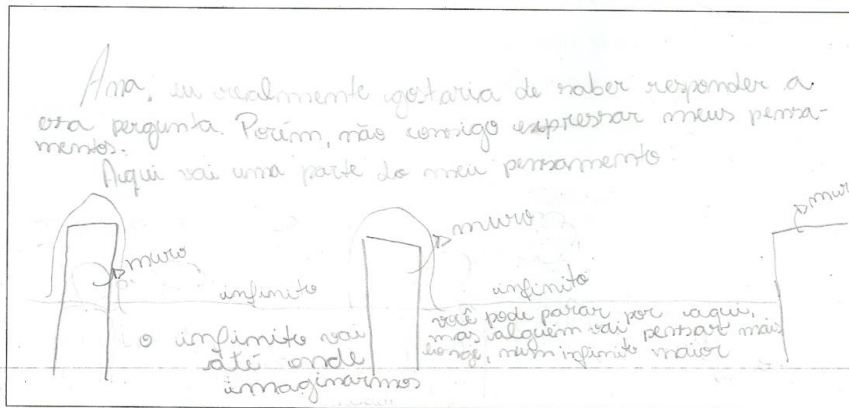 Ana, eu realmente gostaria de saber responder a
essa pergunta. Porém, não consigo expressar meus pensa-
mentos.
Aqui vai uma parte do meu pensamento:
muro
muro
muro
infinito
infinito
o infinito vai
até onde
imaginarmos
você pode parar por aqui,
mas alguém vai pensar mais
longe, num infinito maior